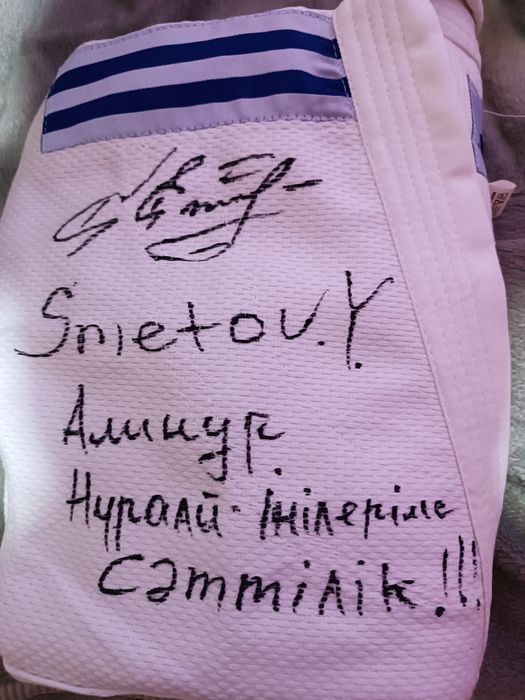 Smetov.Y.
Алинур.
Нұралы-Інілеріме
Сәттілік!!!